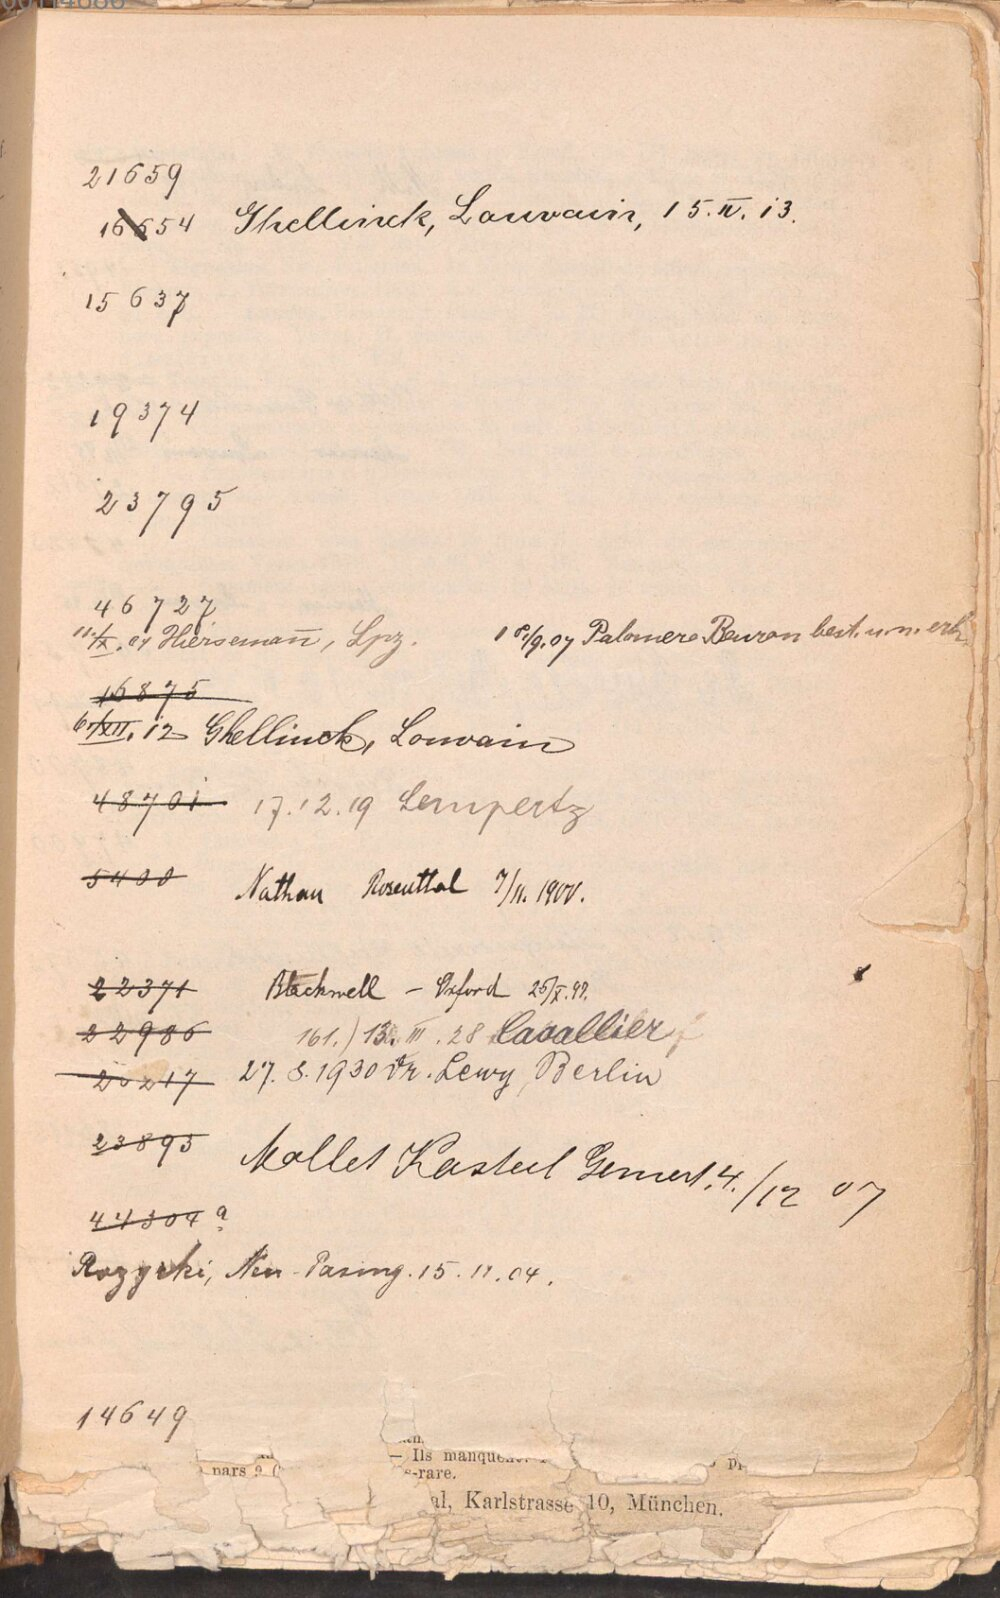 21659
16654 Ghellinck, Louvain, 15.IV.13.
15637
19374
23795
46727
11./IX.07 Hiersemann̄, Lpz. 18./9.07 Palmere Beuron best. u. n. erh.
16875
6./XII.12 Ghellinck, Louvain
48701 17.12.19 Lempertz
5400 Nathan Rosenthal 7/11.
22371 Blackwell – Oxford 25/X.
22986 161.) 13. III.28 Cavallier
27.8.1930 Dr. Lewy Berlin
23893 Mollet Kasteel Gemert. 4./12 07
44304 a
Rozycki, Neu-Pasing. 15.11.04.
14649
– Ils
-rare.
al, Karlstrasse 10, München.